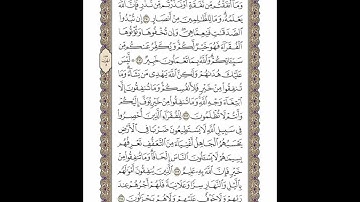 وَمَآ أَنفَقْتُم مِّن نَّفَقَةٍ أَوْ نَذَرْتُم مِّن نَّذْرٍ فَإِنَّ ٱللَّهَ
يَعْلَمُهُۥ وَمَا لِلظَّٰلِمِينَ مِنْ أَنصَارٍ إِن تُبْدُوا۟
ٱلصَّدَقَٰتِ فَنِعِمَّا هِىَ وَإِن تُخْفُوهَا وَتُؤْتُوهَا
ٱلْفُقَرَآءَ فَهُوَ خَيْرٌ لَّكُمْ وَيُكَفِّرُ عَنكُم مِّن
سَيِّـَٔاتِكُمْ وَٱللَّهُ بِمَا تَعْمَلُونَ خَبِيرٌ لَّيْسَ
عَلَيْكَ هُدَىٰهُمْ وَلَٰكِنَّ ٱللَّهَ يَهْدِى مَن يَشَآءُ وَمَا
تُنفِقُوا۟ مِنْ خَيْرٍ فَلِأَنفُسِكُمْ وَمَا تُنفِقُونَ إِلَّا
ٱبْتِغَآءَ وَجْهِ ٱللَّهِ وَمَا تُنفِقُوا۟ مِنْ خَيْرٍ يُوَفَّ إِلَيْكُمْ
وَأَنتُمْ لَا تُظْلَمُونَ لِلْفُقَرَآءِ ٱلَّذِينَ أُحْصِرُوا۟
فِى سَبِيلِ ٱللَّهِ لَا يَسْتَطِيعُونَ ضَرْبًا فِى ٱلْأَرْضِ
يَحْسَبُهُمُ ٱلْجَاهِلُ أَغْنِيَآءَ مِنَ ٱلتَّعَفُّفِ تَعْرِفُهُم
بِسِيمَٰهُمْ لَا يَسْـَٔلُونَ ٱلنَّاسَ إِلْحَافًا وَمَا تُنفِقُوا۟ مِنْ
خَيْرٍ فَإِنَّ ٱللَّهَ بِهِۦ عَلِيمٌ ٱلَّذِينَ يُنفِقُونَ أَمْوَٰلَهُم
بِٱلَّيْلِ وَٱلنَّهَارِ سِرًّا وَعَلَانِيَةً فَلَهُمْ أَجْرُهُمْ عِندَ
رَبِّهِمْ وَلَا خَوْفٌ عَلَيْهِمْ وَلَا هُمْ يَحْزَنُونَ